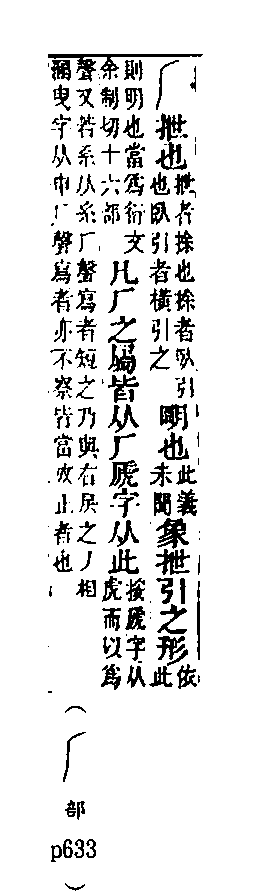 𠂆抴也抴者捈也捈者臥引也臥引者橫引之明也此義未聞象抴引之形依此
則明也當爲衍文余制切十六部凡𠂆之屬皆从𠂆虒字从此按虒字从虎而以爲
聲又若系从糸𠂆聲寫者短之乃與右戾之丿相
溷曳字从申𠂆聲寫者亦不察皆當攺正者也
(𠂆部
p633)